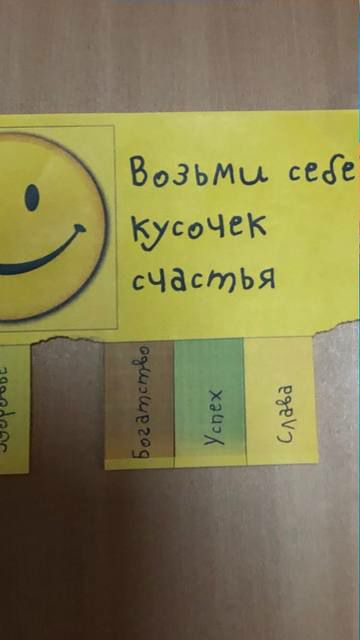 Возьми себе
кусочек
счастья
Здоровье
Богатство
Успех
Слава